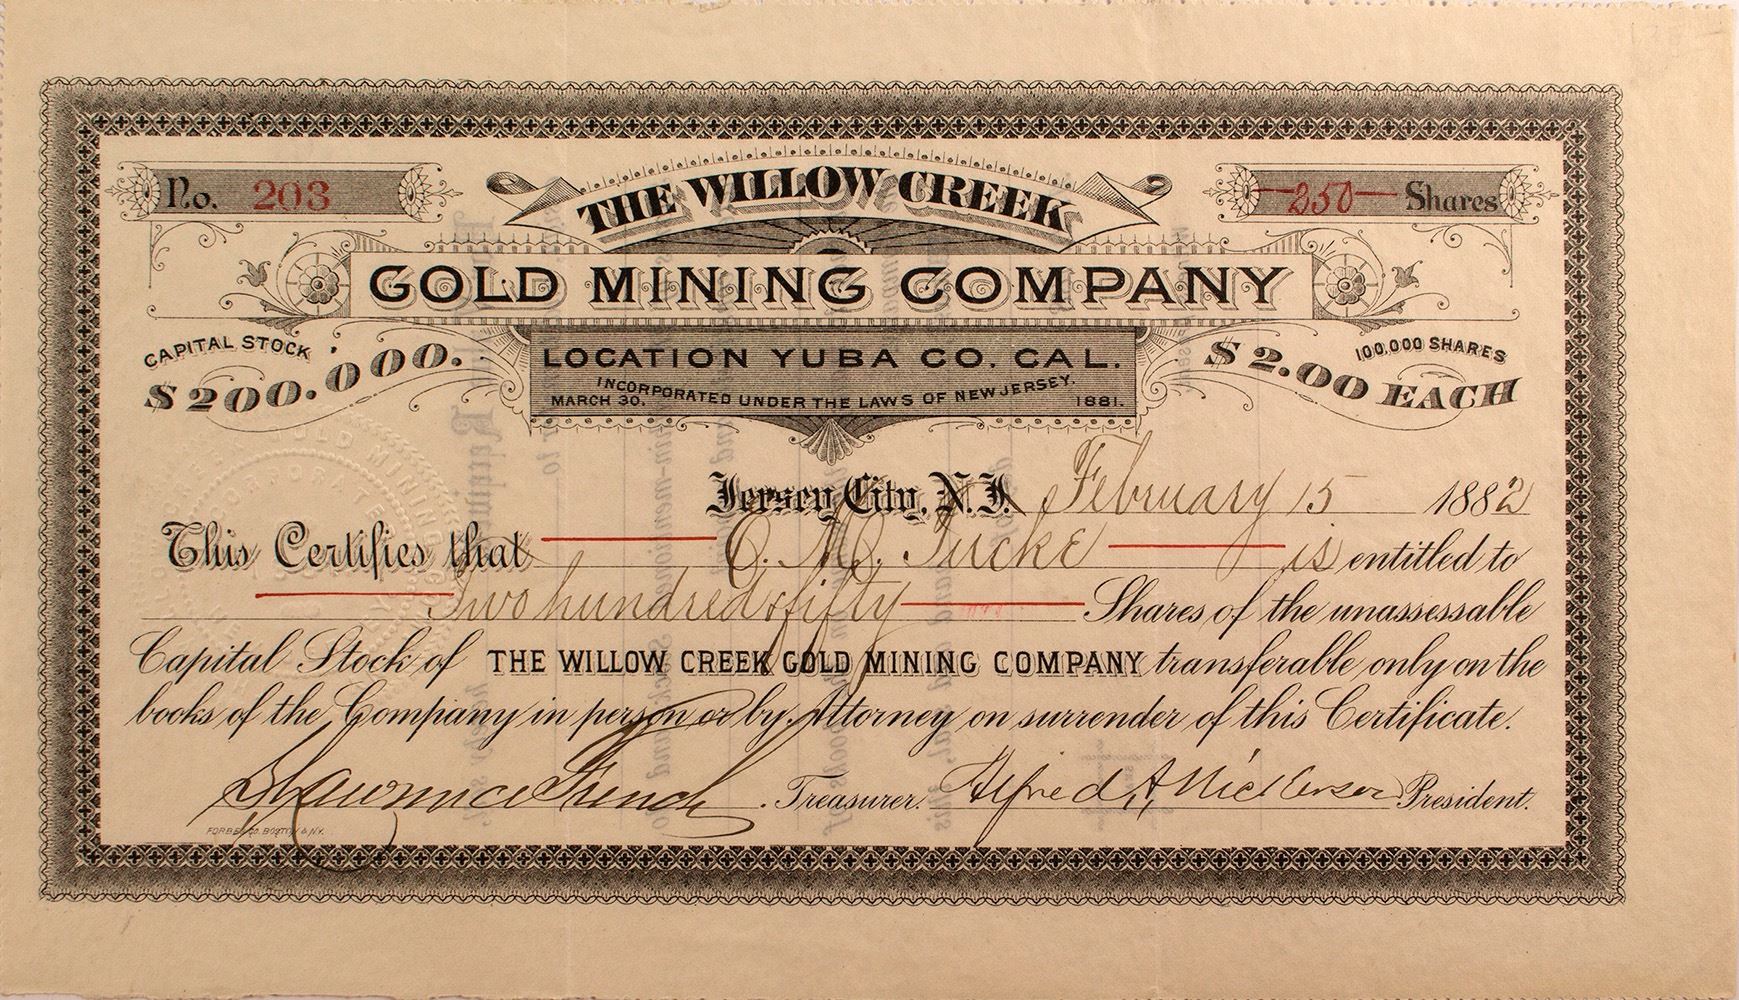 No. 203
250 Shares
THE WILLOW CREEK
GOLD MINING COMPANY
CAPITAL STOCK
$200.000.
LOCATION YUBA CO. CAL.
INCORPORATED UNDER THE LAWS OF NEW JERSEY.
MARCH 30. 1881.
100,000 SHARES
$2.00 EACH
Jersey City, N.J. February 15 1882
This Certifies that O. M. Tucke is entitled to
Two hundred & fifty Shares of the unassessable
Capital Stock of THE WILLOW CREEK GOLD MINING COMPANY transferable only on the
books of the Company in person or by Attorney on surrender of this Certificate.
French Treasurer. Alfred A. Nickerson President.
FORBES CO. BOSTON & N.Y.